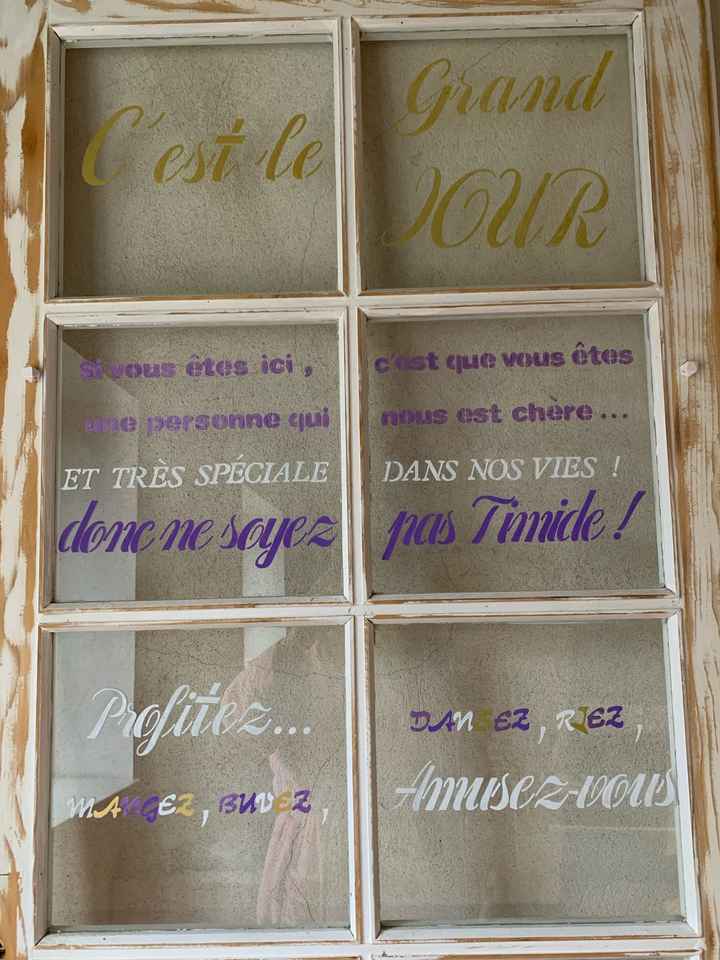 C'est le
Grand
JOUR
Si vous êtes ici, c'est que vous êtes
une personne qui nous est chère...
ET TRÈS SPÉCIALE DANS NOS VIES !
donc ne soyez pas Timide !
Profitez...
MANGEZ, BUVEZ,
DANSEZ, RIEZ,
Amusez-vous